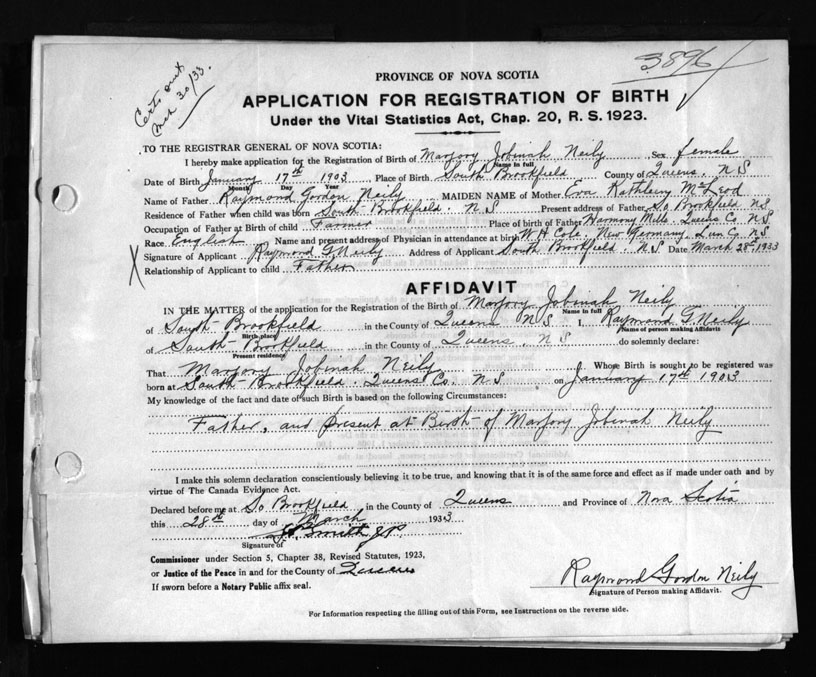 Certs out
Mch 30/33.
3896
PROVINCE OF NOVA SCOTIA
APPLICATION FOR REGISTRATION OF BIRTH
Under the Vital Statistics Act, Chap. 20, R. S. 1923.
TO THE REGISTRAR GENERAL OF NOVA SCOTIA:
I hereby make application for the Registration of Birth of Marjory Jobinah Neily Sex female
Name in full
Date of Birth January 17th 1903 Place of Birth South Brookfield County of Queens, N S
Month Day Year
Name of Father Raymond Gordon Neily MAIDEN NAME of Mother Eva Kathleen McLeod
Residence of Father when child was born South Brookfield N S Present address of Father So Brookfield NS
Occupation of Father at Birth of child Farmer Place of birth of Father Harmony Mills Queens Co. N S
Race English Name and present address of Physician in attendance at birth W H Cole New Germany Lun Co. N S
Signature of Applicant Raymond G Neily Address of Applicant South Brookfield. N S Date March 28th, 1933
X Relationship of Applicant to child Father
AFFIDAVIT
IN THE MATTER of the application for the Registration of the Birth of Marjory Jobinah Neily
Name in full
of South Brookfield in the County of Queens N S I, Raymond G. Neily
Birth place Name of person making Affidavit
of South Brookfield in the County of Queens, N S do solemnly declare:
Present residence
That Marjory Jobinah Neily Whose Birth is sought to be registered was
born at South Brookfield. Queens Co. N S on January 17th 1903
My knowledge of the fact and date of such Birth is based on the following Circumstances:
Father, and present at Birth of Marjory Jobinah Neily
I make this solemn declaration conscientiously believing it to be true, and knowing that it is of the same force and effect as if made under oath and by
virtue of The Canada Evidence Act.
Declared before me at So Brookfield in the County of Queens and Province of Nova Scotia
this 28th day of March 1933
Smith JP
Signature of
Commissioner under Section 5, Chapter 38, Revised Statutes, 1923,
or Justice of the Peace in and for the County of Queens
If sworn before a Notary Public affix seal.
Raymond Gordon Neily
Signature of Person making Affidavit.
For Information respecting the filling out of this Form, see Instructions on the reverse side.